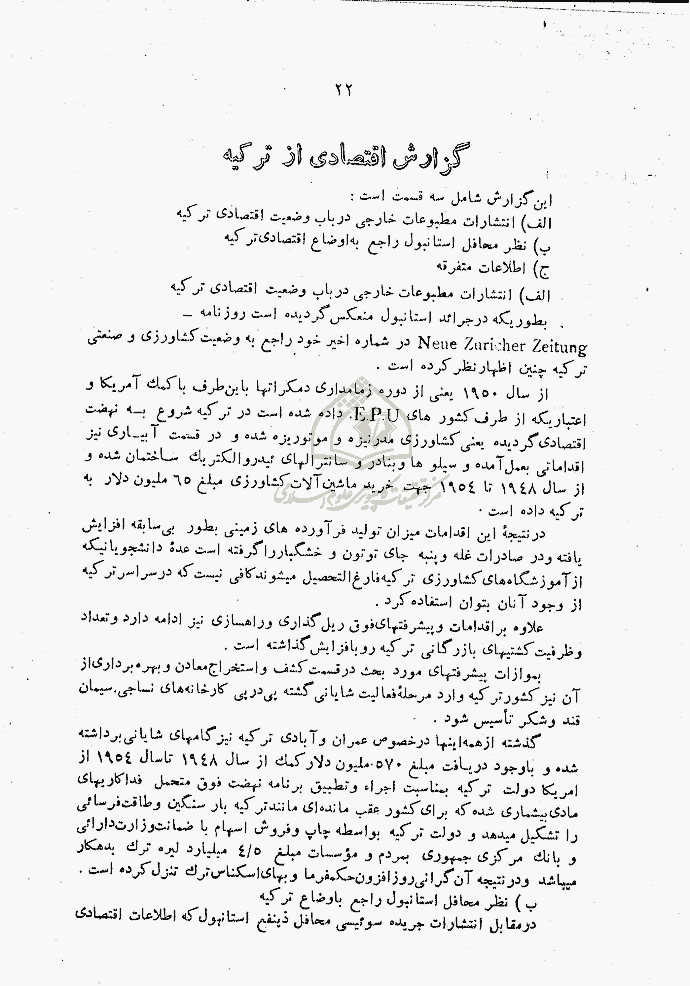 ۲۲
گزارش اقتصادی از ترکیه
این گزارش شامل سه قسمت است :
الف) انتشارات مطبوعات خارجی درباب وضعیت اقتصادی ترکیه
ب) نظر محافل استانبول راجع به‌اوضاع اقتصادی‌ترکیه
ج) اطلاعات متفرقه
الف) انتشارات مطبوعات خارجی درباب وضعیت اقتصادی ترکیه
بطوریکه درجرائد استانبول منعکس‌گردیده است روزنامه –
Neue Zuricher Zeitung در شماره اخیر خود راجع به وضعیت‌کشاورزی و صنعتی
ترکیه چنین اظهارنظر کرده است .
از سال ۱۹۵۰ یعنی از دوره زمامداری دمکراتها باین‌طرف باکمك آمریکا و
اعتباریکه از طرف‌کشور های E.P.U. داده شده است در ترکیه شروع بــه نهضت
اقتصادی‌گردیده یعنی‌کشاورزی مدرنیزه و موتوریزه شده و در قسمت آبیـاری نیز
اقداماتی بعمل‌آمده و سیلو ها وبنادر و سانترالهای ئیدروالکتریك ساختمان شده و
از سال ۱۹۴۸ تا ۱۹۵۴ جهت خرید ماشین‌آلات‌کشاورزی مبلغ ۶۵ ملیون دلار به
ترکیه داده است .
درنتیجهٔ این اقدامات میزان تولید فرآورده های زمینی بطور بی‌سابقه افزایش
یافته ودر صادرات غله وپنبه جای توتون و خشگبارراگرفته است عدهٔ دانشجویانیکه
ازآموزشگاه‌های‌کشاورزی ترکیه‌فارغ‌التحصیل میشوندکافی نیست‌که درسراسرترکیه
از وجود آنان بتوان استفاده‌کرد .
علاوه براقدامات وپیشرفتهای‌فوق ریل‌گذاری وراهسازی نیز ادامه دارد وتعداد
وظرفیت‌کشتیهای بازرگانی ترکیه روبافزایش‌گذاشته است .
بموازات پیشرفتهای مورد بحث درقسمت کشف واستخراج‌معادن وبهره‌برداری‌از
آن نیزکشورترکیه وارد مرحلهٔ‌فعالیت شایانی‌گشته پی‌درپی کارخانه‌های نساجی،سیمان
قند وشکر تأسیس شود .
گذشته ازهمه‌اینها درخصوص عمران وآبادی ترکیه نیزگامهای شایانی‌برداشته
شده و باوجود دریافت مبلغ ۵۷۰ملیون دلارکمك از سال ۱۹۴۸ تاسال ۱۹۵۴ از
امریکا دولت ترکیه بمناسبت اجراء وتطبیق برنامه نهضت فوق متحمل فداکاریهای
مادی‌بیشماری شده‌که برای‌کشور عقب مانده‌ای مانندترکیه بار سنگین وطاقت‌فرسائی
را تشکیل میدهد و دولت ترکیه بواسطه چاپ وفروش اسهام با ضمانت‌وزارت‌دارائی
و بانك مرکزی جمهوری بمردم و مؤسسات مبلغ ۴/۵ میلیارد لیره ترك بدهکار
میباشد ودرنتیجه آن‌گرانی‌روزافزون‌حکمفرما وبهای‌اسکناس‌ترك تنزل‌کرده است .
ب ) نظر محافل استانبول راجع باوضاع ترکیه
درمقابل انتشارات جریده سوئیسی محافل ذینفع استانبول‌که اطلاعات اقتصادی
مرکز تحقیقات کامپیوتری علوم اسلامی